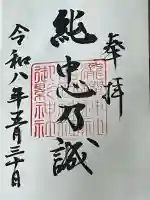 奉拝
純忠乃誠
令和八年五月三十日